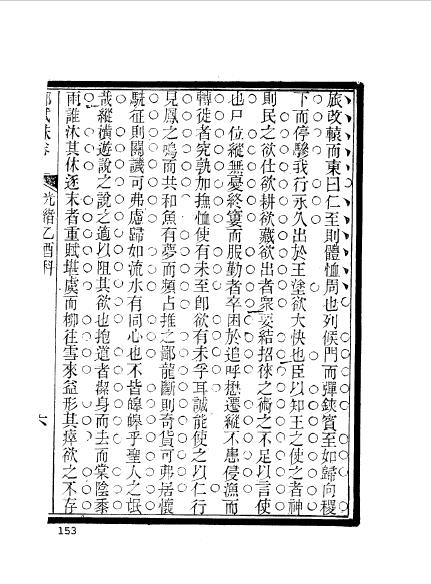 旅改轅而東曰仁至則體恤周也列候門而彈鋏賓至如歸向稷
下而停驂我行永久出於王塗欲大快也臣以知王之使之者神
則民之欲仕欲耕欲藏欲出者衆要結招徠之術之不足以言使
也尸位縱無憂終窶而服勤者卒困於追呼懋遷縱不患侵漁而
轉徙者究孰加撫恤使有未至卽欲有未孚耳誠能使之以仁行
見鳳之鳴而共和魚有夢而頻占推之鄙龍斷則奇貨可弗居懷
駪征則關譏可弗虛歸如流水有同心也不皆皞皞乎聖人之氓
哉縱橫遊說之說之適以阻其欲也抱道者潔身而去而棠陰黍
雨誰沐其休逐末者重賦堪虞而柳往雪來益形其瘁欲之不存
光緒乙酉科
六
153